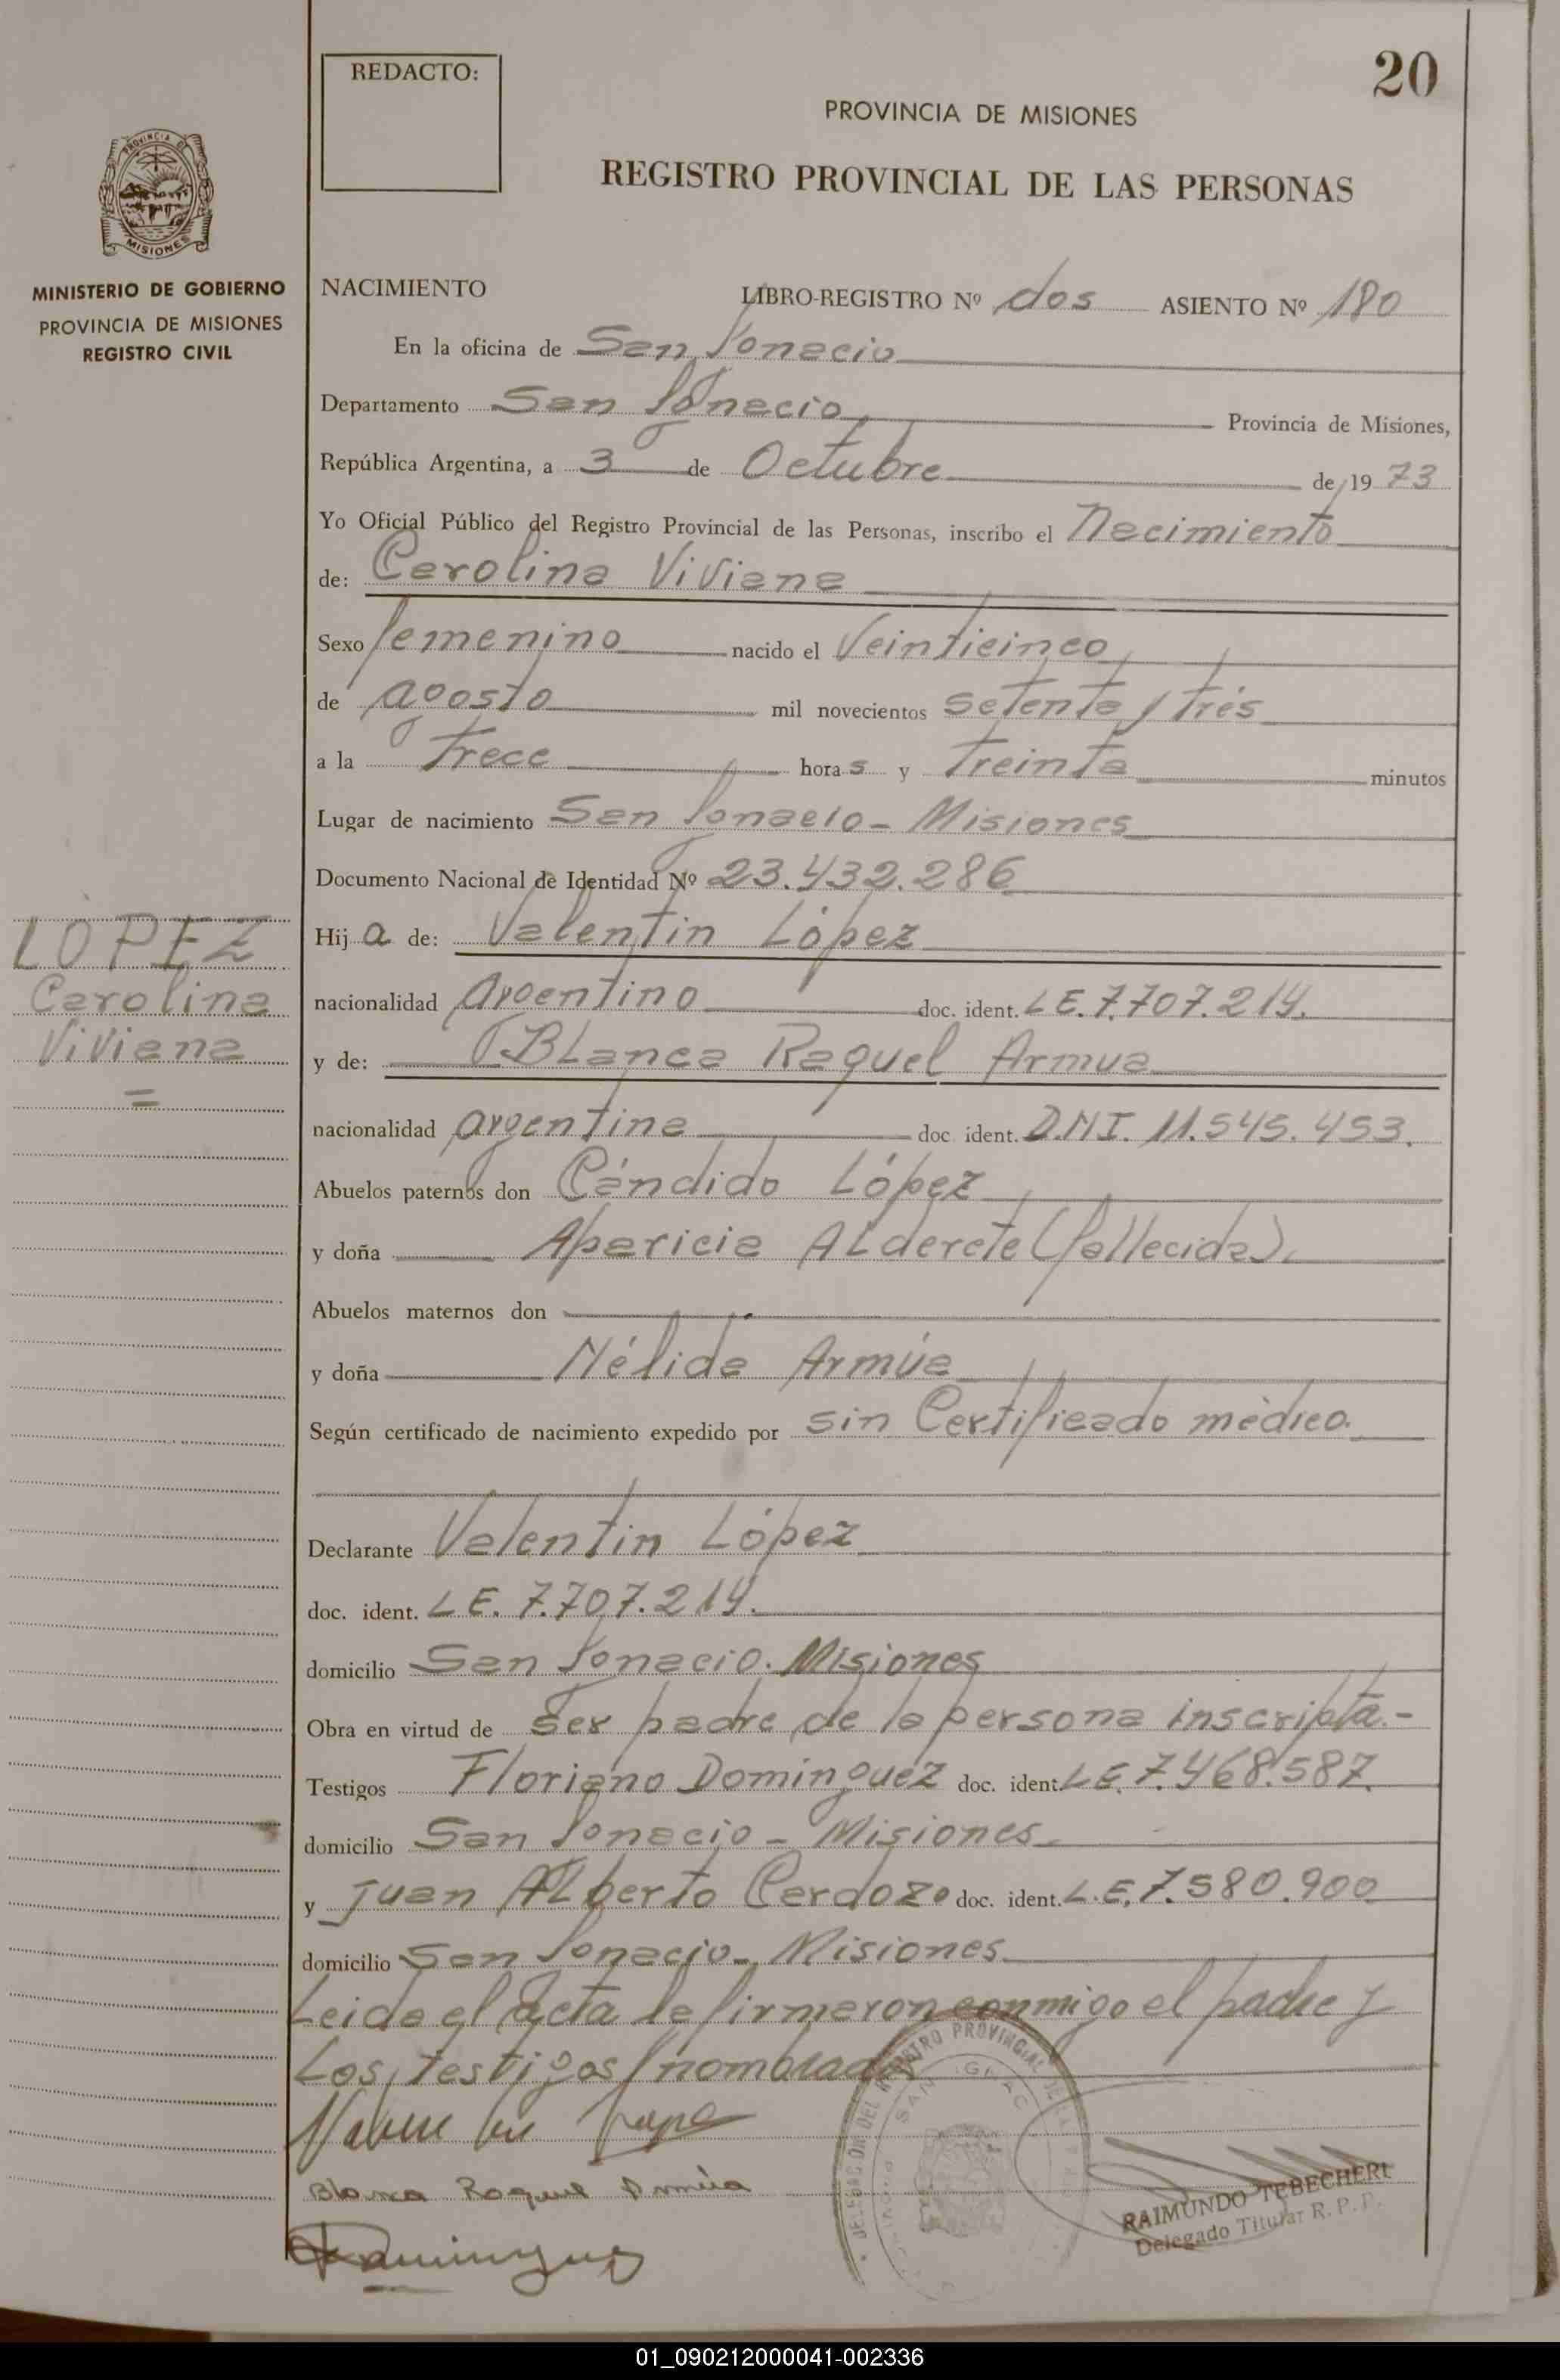 REDACTO:
20
PROVINCIA DE MISIONES
REGISTRO PROVINCIAL DE LAS PERSONAS
PROVINCIA DE
MISIONES
MINISTERIO DE GOBIERNO
PROVINCIA DE MISIONES
REGISTRO CIVIL
NACIMIENTO LIBRO-REGISTRO Nº dos ASIENTO Nº 180
En la oficina de San Ignacio
Departamento San Ignacio Provincia de Misiones,
República Argentina, a 3 de Octubre de 19 73
Yo Oficial Público del Registro Provincial de las Personas, inscribo el Nacimiento
de: Carolina Viviana
Sexo femenino nacido el Veinticinco
de agosto mil novecientos setenta y trés
a la trece horas y treinta minutos
Lugar de nacimiento San Ignacio - Misiones
Documento Nacional de Identidad Nº 23.432.286
LOPEZ
Carolina
Viviana
=
Hija de: Valentin López
nacionalidad argentino doc. ident. L.E. 7.707.214.
y de: Blanca Raquel Armua
nacionalidad argentina doc ident. D.N.I. 11.545.453.
Abuelos paternos don Cándido López
y doña Aparicia Alderete (fallecida).
Abuelos maternos don
y doña Nélida Armúa
Según certificado de nacimiento expedido por sin Certificado médico.
Declarante Valentin López
doc. ident. L.E. 7.707.214.
domicilio San Ignacio. Misiones
Obra en virtud de ser padre de la persona inscripta.-
Testigos Floriano Dominguez doc. ident. L.E. 7.468.587.
domicilio San Ignacio - Misiones
y Juan Alberto Cardozo doc. ident. L.E. 7.580.900
domicilio San Ignacio - Misiones
Leida el Acta la firmaron conmigo el padre y
Los testigos nombrados
Blanca Raquel Armúa
Dominguez
DELEGACION DEL REGISTRO PROVINCIAL DE LAS
SAN IGNACIO
RAIMUNDO TEBECHERI
Delegado Titular R. P. P.
01_090212000041-002336